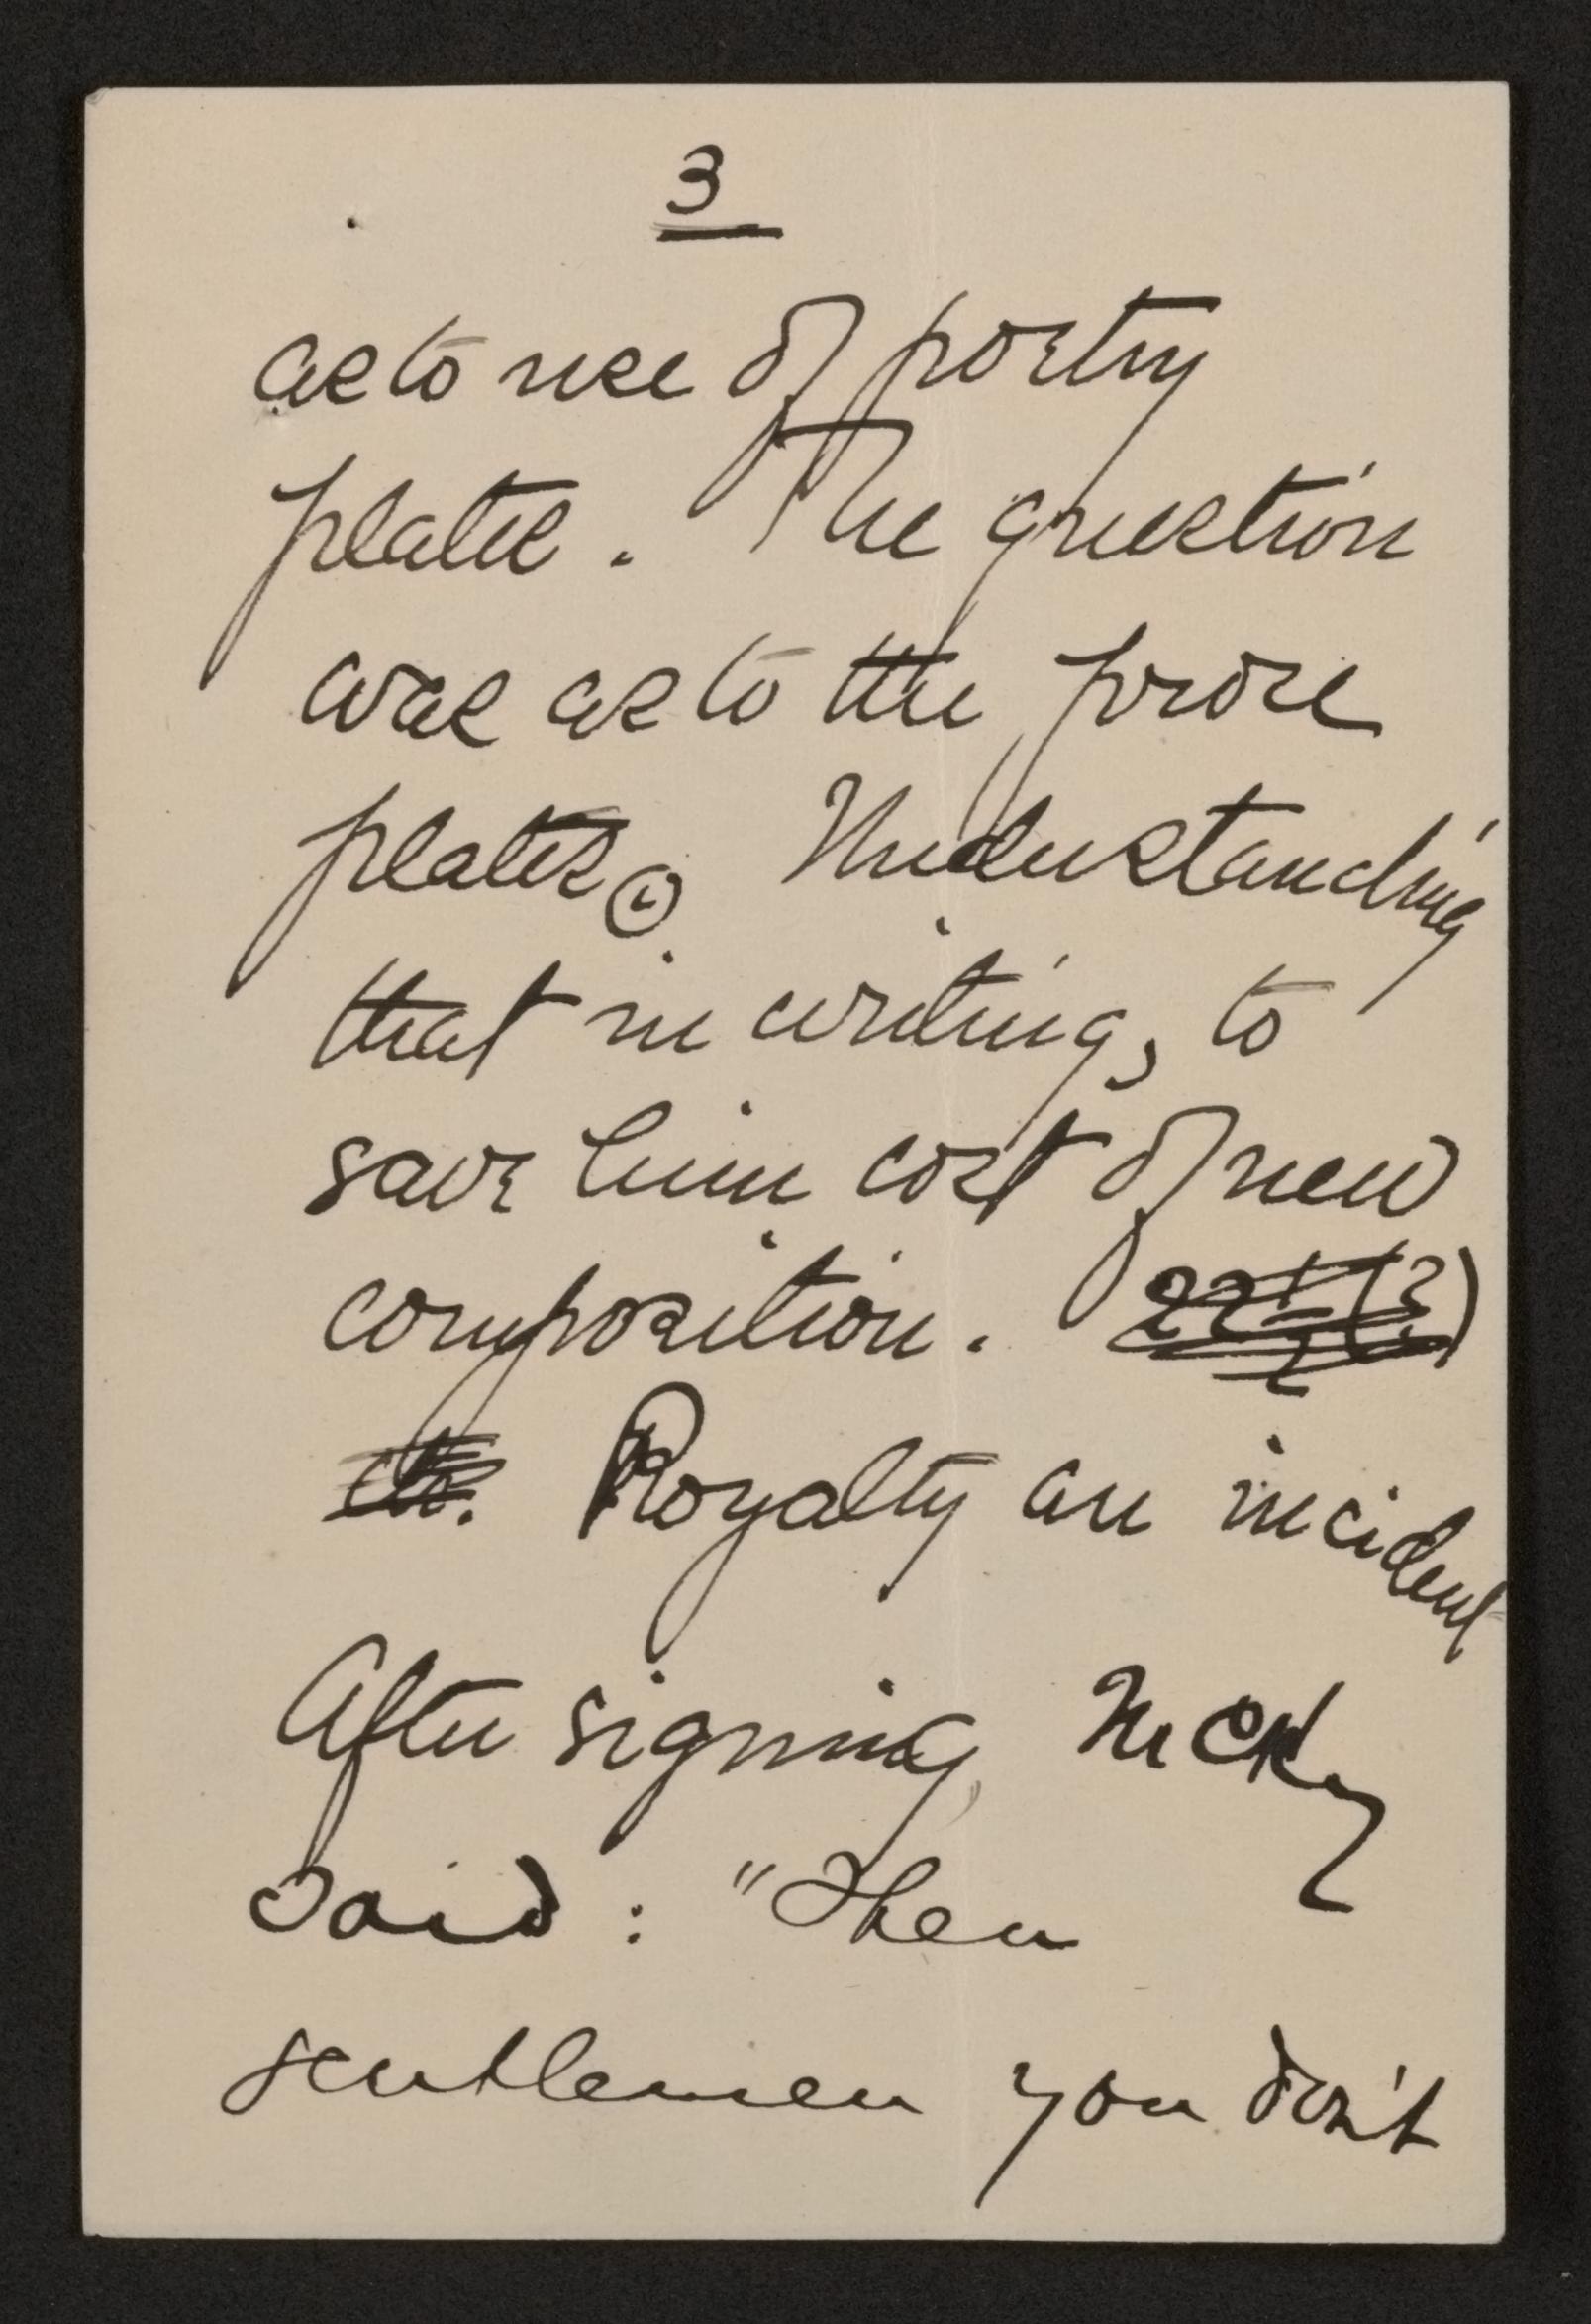 3
as to use of poetry
plates. The question
was as to the prose
plates. Understanding
that in writing, to
save him cost of new
composition.
etc. Royalty an incident
After signing, McKay
said: "Then
gentlemen you don't